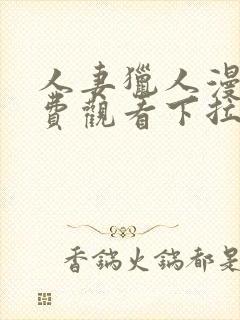 人妻獵人漫
費觀看下拉
香鍋火鍋都是